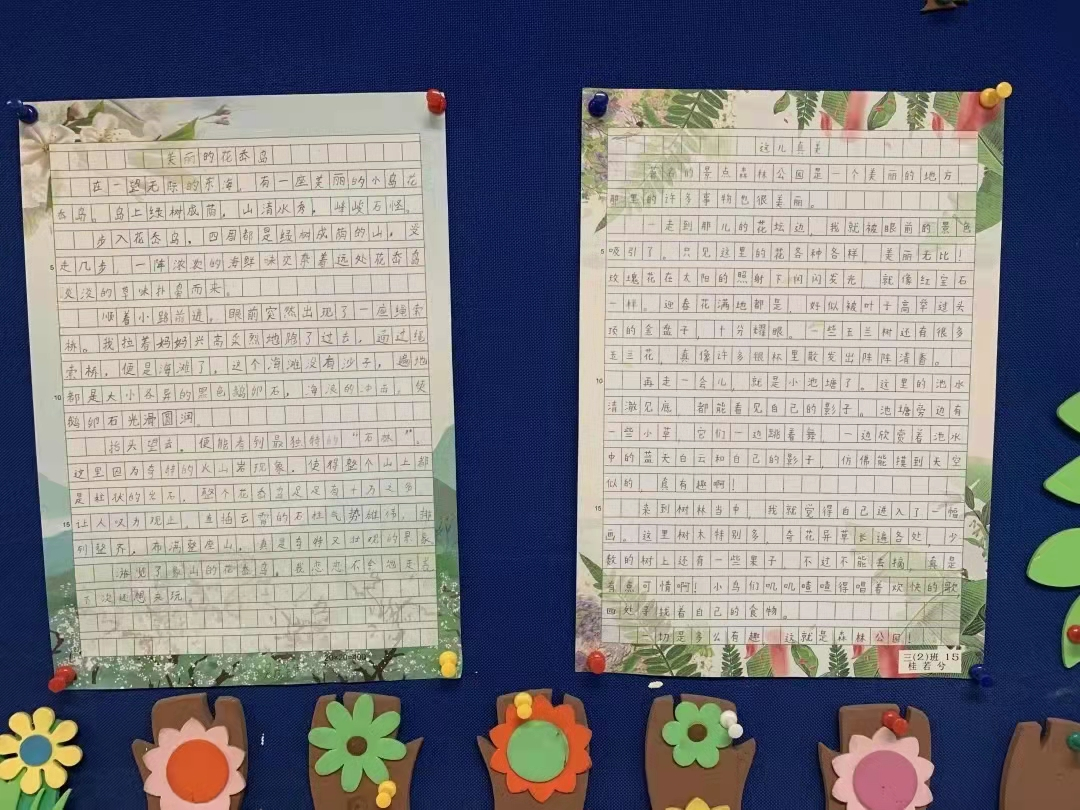 美丽的花岙岛
在一望无际的东海，有一座美丽的小岛花
岙岛。岛上绿树成荫，山清水秀，峻石怪。
步入花岙岛，四周都是绿树成荫的山，没
走几步，一阵浓烈的海鲜味夹杂着远处花岙岛
淡淡的草味扑鼻而来。
顺着小路前进，眼前突然出现了一座绳索
桥。我拉着妈妈兴高采烈地跑了过去，通过绳
索桥，便是海滩了，这个海滩没有沙子，遍地
都是大小各异的黑色鹅卵石，海浪的冲击，使
鹅卵石光滑圆润。
抬头望去，便能看到最独特的“石林”。
这里因为奇特的火山岩现象，使得整个山上都
是柱状的岩石，整个花岙岛足足有十万之多，
让人叹为观止，直插云霄的石柱气势雄伟，排
列整齐，布满整座山，真是奇妙又壮观的景象
游览了的花岙岛，我恋恋不舍地
下次还想来玩。
20×20=400
这儿真美
的景点森林公园是一个美丽的地方，
那里的许多事物也很美丽。
一走到那儿的花坛边，我就被眼前的景色
5吸引了。只见这里的花各种各样，美丽无比！
玫瑰花在太阳的照射下闪闪发光，就像红宝石
一样。迎春花满地都是，好似被叶子高举过头
顶的金盘子，十分耀眼。一些玉兰树还有很多
玉兰花，真像许多银杯里散发出阵阵清香。
10再走一会儿，就是小池塘了。这里的池水
清澈见底，都能看见自己的影子。池塘旁边有
一些小草，它们一边跳着舞，一边欣赏着池水
中的蓝天白云和自己的影子，仿佛能摸到天空
似的，真有趣啊！
15来到树林当中，我就觉得自己进入了一幅
画。这里树木特别多，奇花异草长遍各处，少
数的树上还有一些果子，不过不能去摘，真是
有点可惜啊！小鸟们叽叽喳喳得唱着欢快的歌
四处寻找着自己的食物。
一切是多么有趣，这就是森林公园！
三(2)班 15
桂若兮